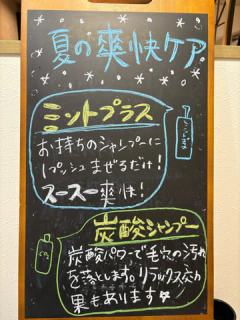 夏の爽快ケア
ミントプラス
お持ちのシャンプーに
1プッシュまぜるだけ!
スースー爽快!
炭酸シャンプー
炭酸パワーで毛穴の汚れ
を落とします。リラックス効
果もあります
CO2